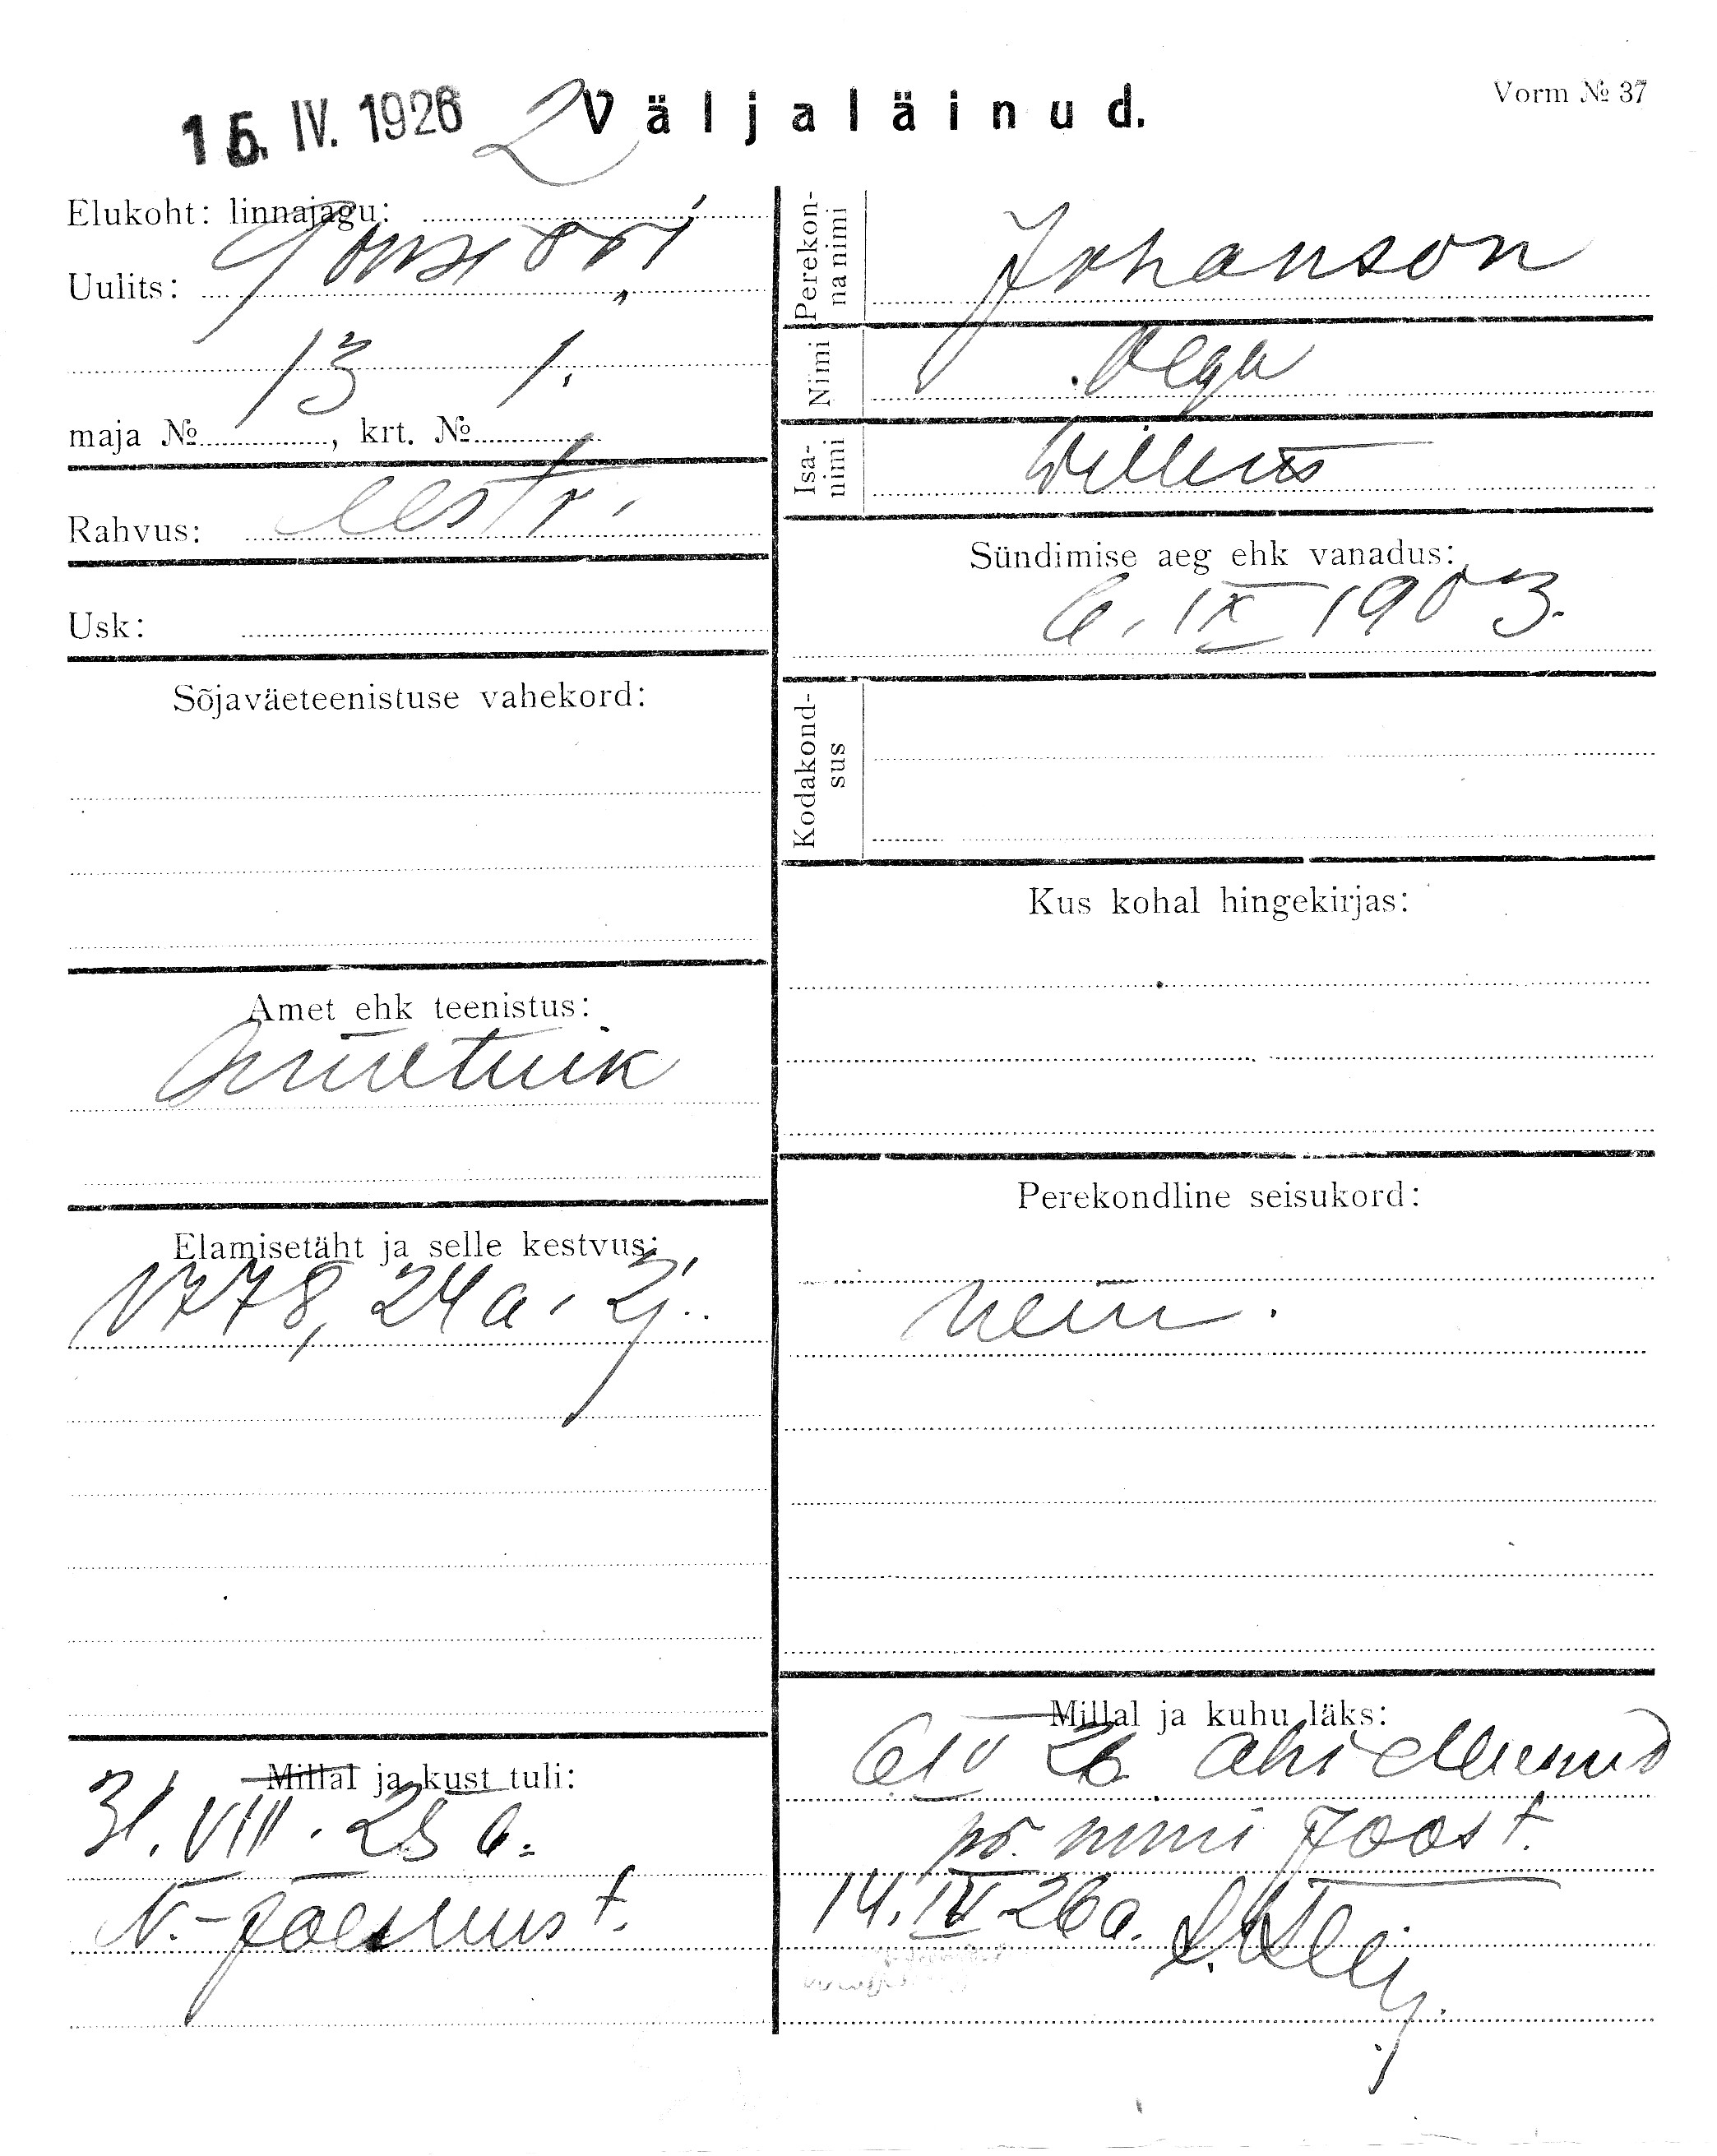 15. IV. 1926
2
Väljaläinud.
Vorm № 37
Elukoht: linnajagu:
Uulits: Gonsiori
13 1.
maja № , krt. №
Rahvus: eesti
Usk:
Sõjaväeteenistuse vahekord:
Amet ehk teenistus:
Ametnik
Elamisetäht ja selle kestvus:
1778, 24 a.
Millal ja kust tuli:
31. VIII. 25 a.
N.-Jõesuust.
Perekonnanimi
Johanson
Nimi
Olga
Isanimi
Sündimise aeg ehk vanadus:
6. IX 1903.
Kodakondsus
Kus kohal hingekirjas:
Perekondline seisukord:
Millal ja kuhu läks:
6 IV 26 abiellunud
pr. nimi Joost.
14. IV 26 a.